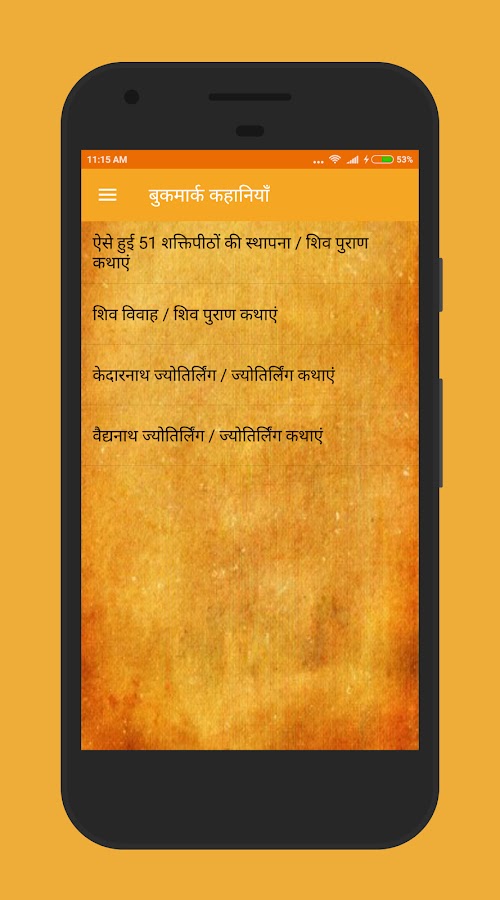 11:15 AM
53%
बुकमार्क कहानियाँ
ऐसे हुई 51 शक्तिपीठों की स्थापना / शिव पुराण
कथाएं
शिव विवाह / शिव पुराण कथाएं
केदारनाथ ज्योतिर्लिंग / ज्योतिर्लिंग कथाएं
वैद्यनाथ ज्योतिर्लिंग / ज्योतिर्लिंग कथाएं